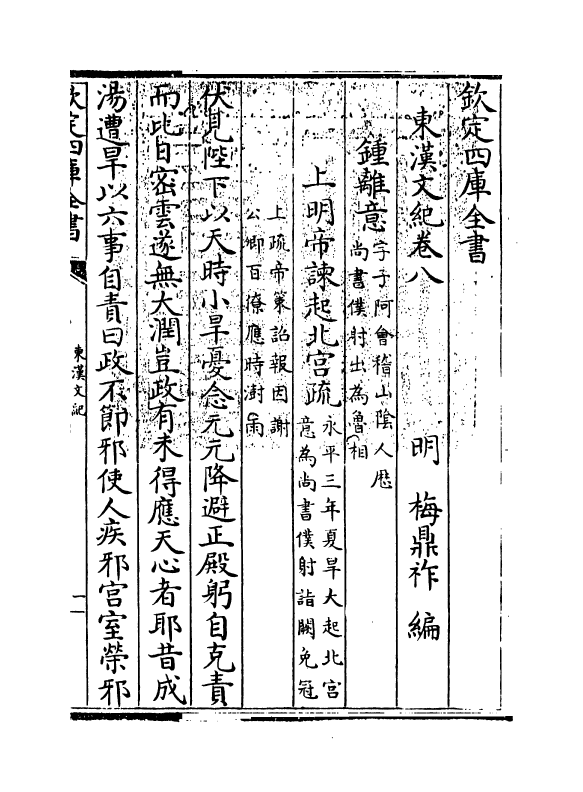 欽定四庫全書
東漢文紀卷八
明 梅鼎祚 編
鍾離意
字子阿會稽山陰人歴
尚書僕射出為魯相
上明帝諫起北宫疏
永平三年夏旱大起北宫
意為尚書僕射詣闕免冠
上疏帝策詔報因謝
公卿百僚應時澍雨
伏見陛下以天時小旱憂念元元降避正殿躬自克責
而比日密雲遂無大潤豈政有未得應天心者耶昔成
湯遭旱以六事自責曰政不節邪使人疾邪宫室榮邪
欽定四庫全書
東漢文紀
一